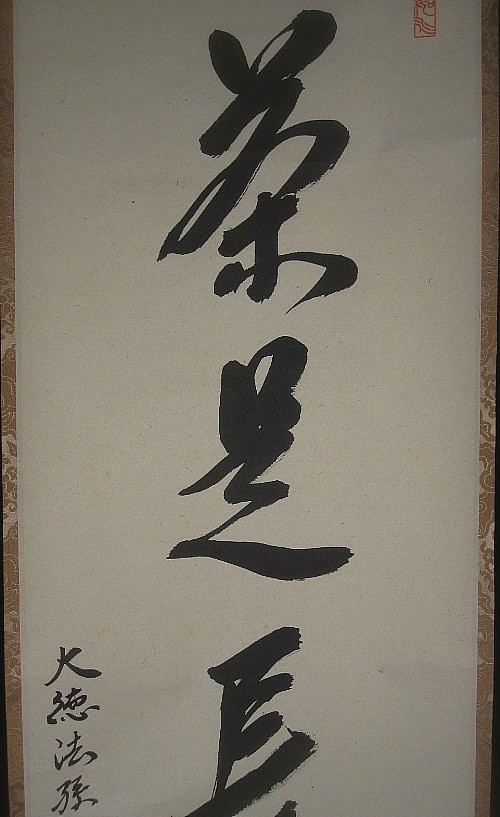 茶是
大徳法孫